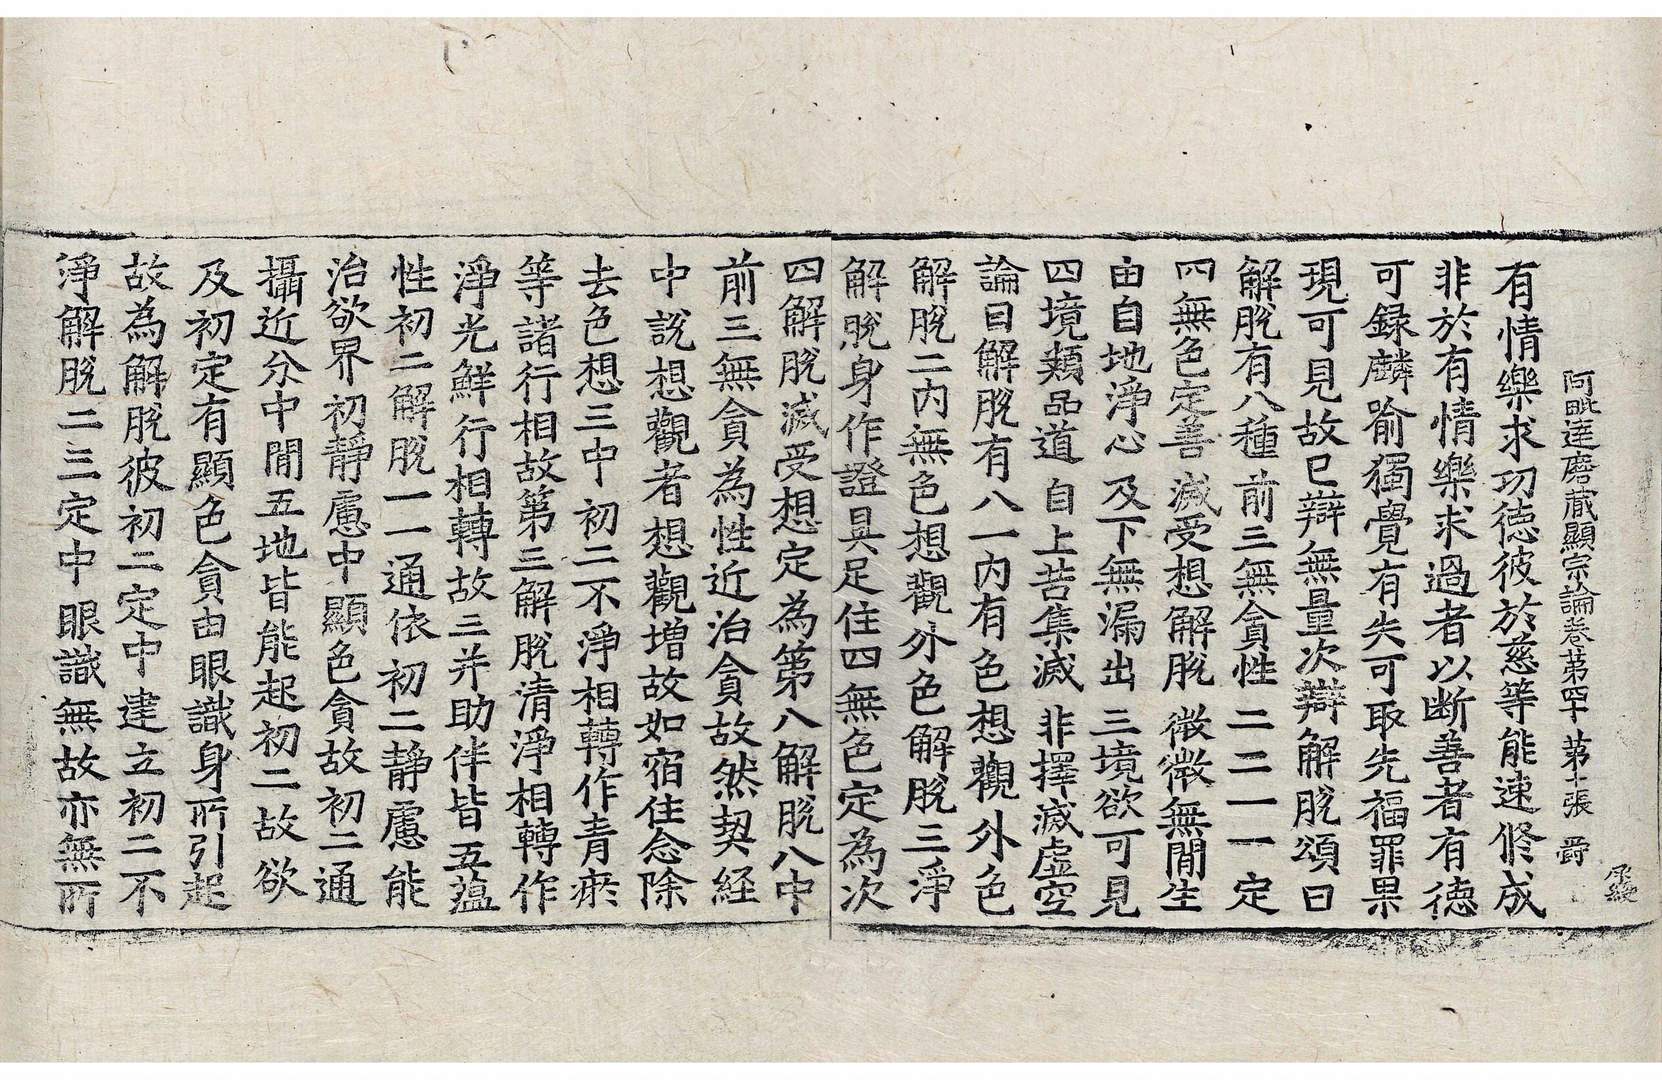 阿毗達磨藏顯宗論卷第四十 第十張 爵
有情樂求功德彼於慈等能速修成
非於有情樂求過者以斷善者有德
可録麟喻獨覺有失可取先福罪果
現可見故已辯無量次辯解脫頌曰
解脫有八種 前三無貪性 二二一一定
四無色定善 滅受想解脫 微微無閒生
由自地淨心 及下無漏出 三境欲可見
四境類品道 自上苦集滅 非擇滅虛空
論曰解脫有八一內有色想觀外色
解脫二內無色想觀外色解脫三淨
解脫身作證具足住四無色定為次
四解脫滅受想定為第八解脫八中
前三無貪為性近治貪故然契經
中說想觀者想觀增故如宿住念除
去色想三中初二不淨相轉作青瘀
等諸行相故第三解脫清淨相轉作
淨光鮮行相轉故三并助伴皆五蘊
性初二解脫一一通依初二靜慮能
治欲界初靜慮中顯色貪故初二通
攝近分中閒五地皆能起初二故欲
及初定有顯色貪由眼識身所引起
故為解脫彼初二定中建立初二不
淨解脫二三定中眼識無故亦無所